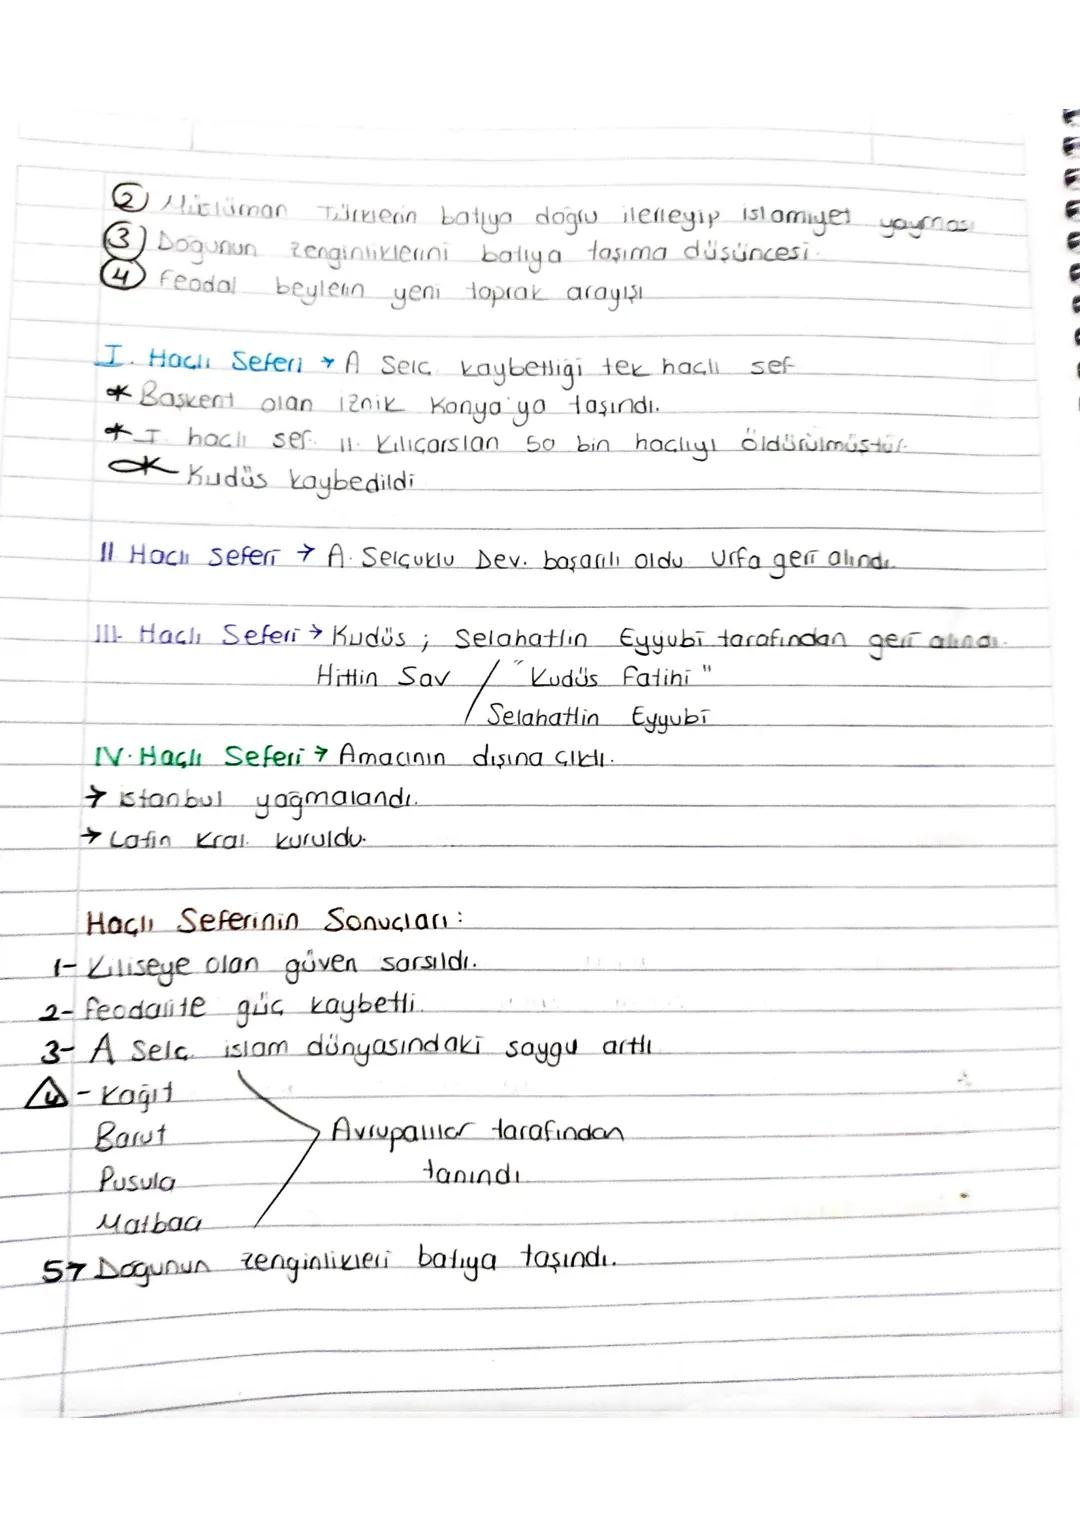 2) Müslüman Türklerin batıya doğru ilerleyip islamiyet yayması
3) Doğunun zenginliklerini batıya taşıma düşüncesi.
4) Feodal beylerin yeni toprak arayışı
I. Haçlı Seferi → A Selç. kaybettiği tek haçlı sef
* Başkent olan iznik Konya'ya taşındı.
* I. haçlı sef. II. Kılıçarslan 50 bin haçlıyı öldürülmüştür.
* Kudüs kaybedildi
II Haçlı Seferi → A. Selçuklu Dev. başarılı oldu Urfa geri alındı.
III- Haçlı Seferi → Kudüs ; Selahattin Eyyubi tarafından geri alındı.
Hittin Sav / "Kudüs Fatihi"
Selahattin Eyyubi
IV. Haçlı Seferi → Amacının dışına çıktı.
→ istanbul yağmalandı.
→ Latin Kral. kuruldu.
Haçlı Seferinin Sonuçları:
1- Kiliseye olan güven sarsıldı.
2- feodalite güç kaybetti.
3- A Selç. islam dünyasındaki saygu arttı
4 - Kağıt
Barut
Pusula
Matbaa
Avrupalılar tarafından
tanındı
5→ Dogunun zenginlikleri batıya taşındı.